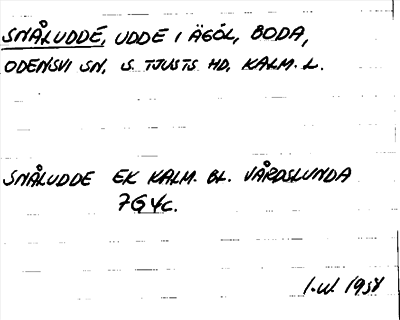 SNÅLUDDE, UDDE I ÄGÖL, BODA,
ODENSVI SN, S. TJUSTS HD, KALM. L.
SNÅLUDDE EK KALM. BL. VÅRDSLUNDA
7G4c.
I.W. 1958